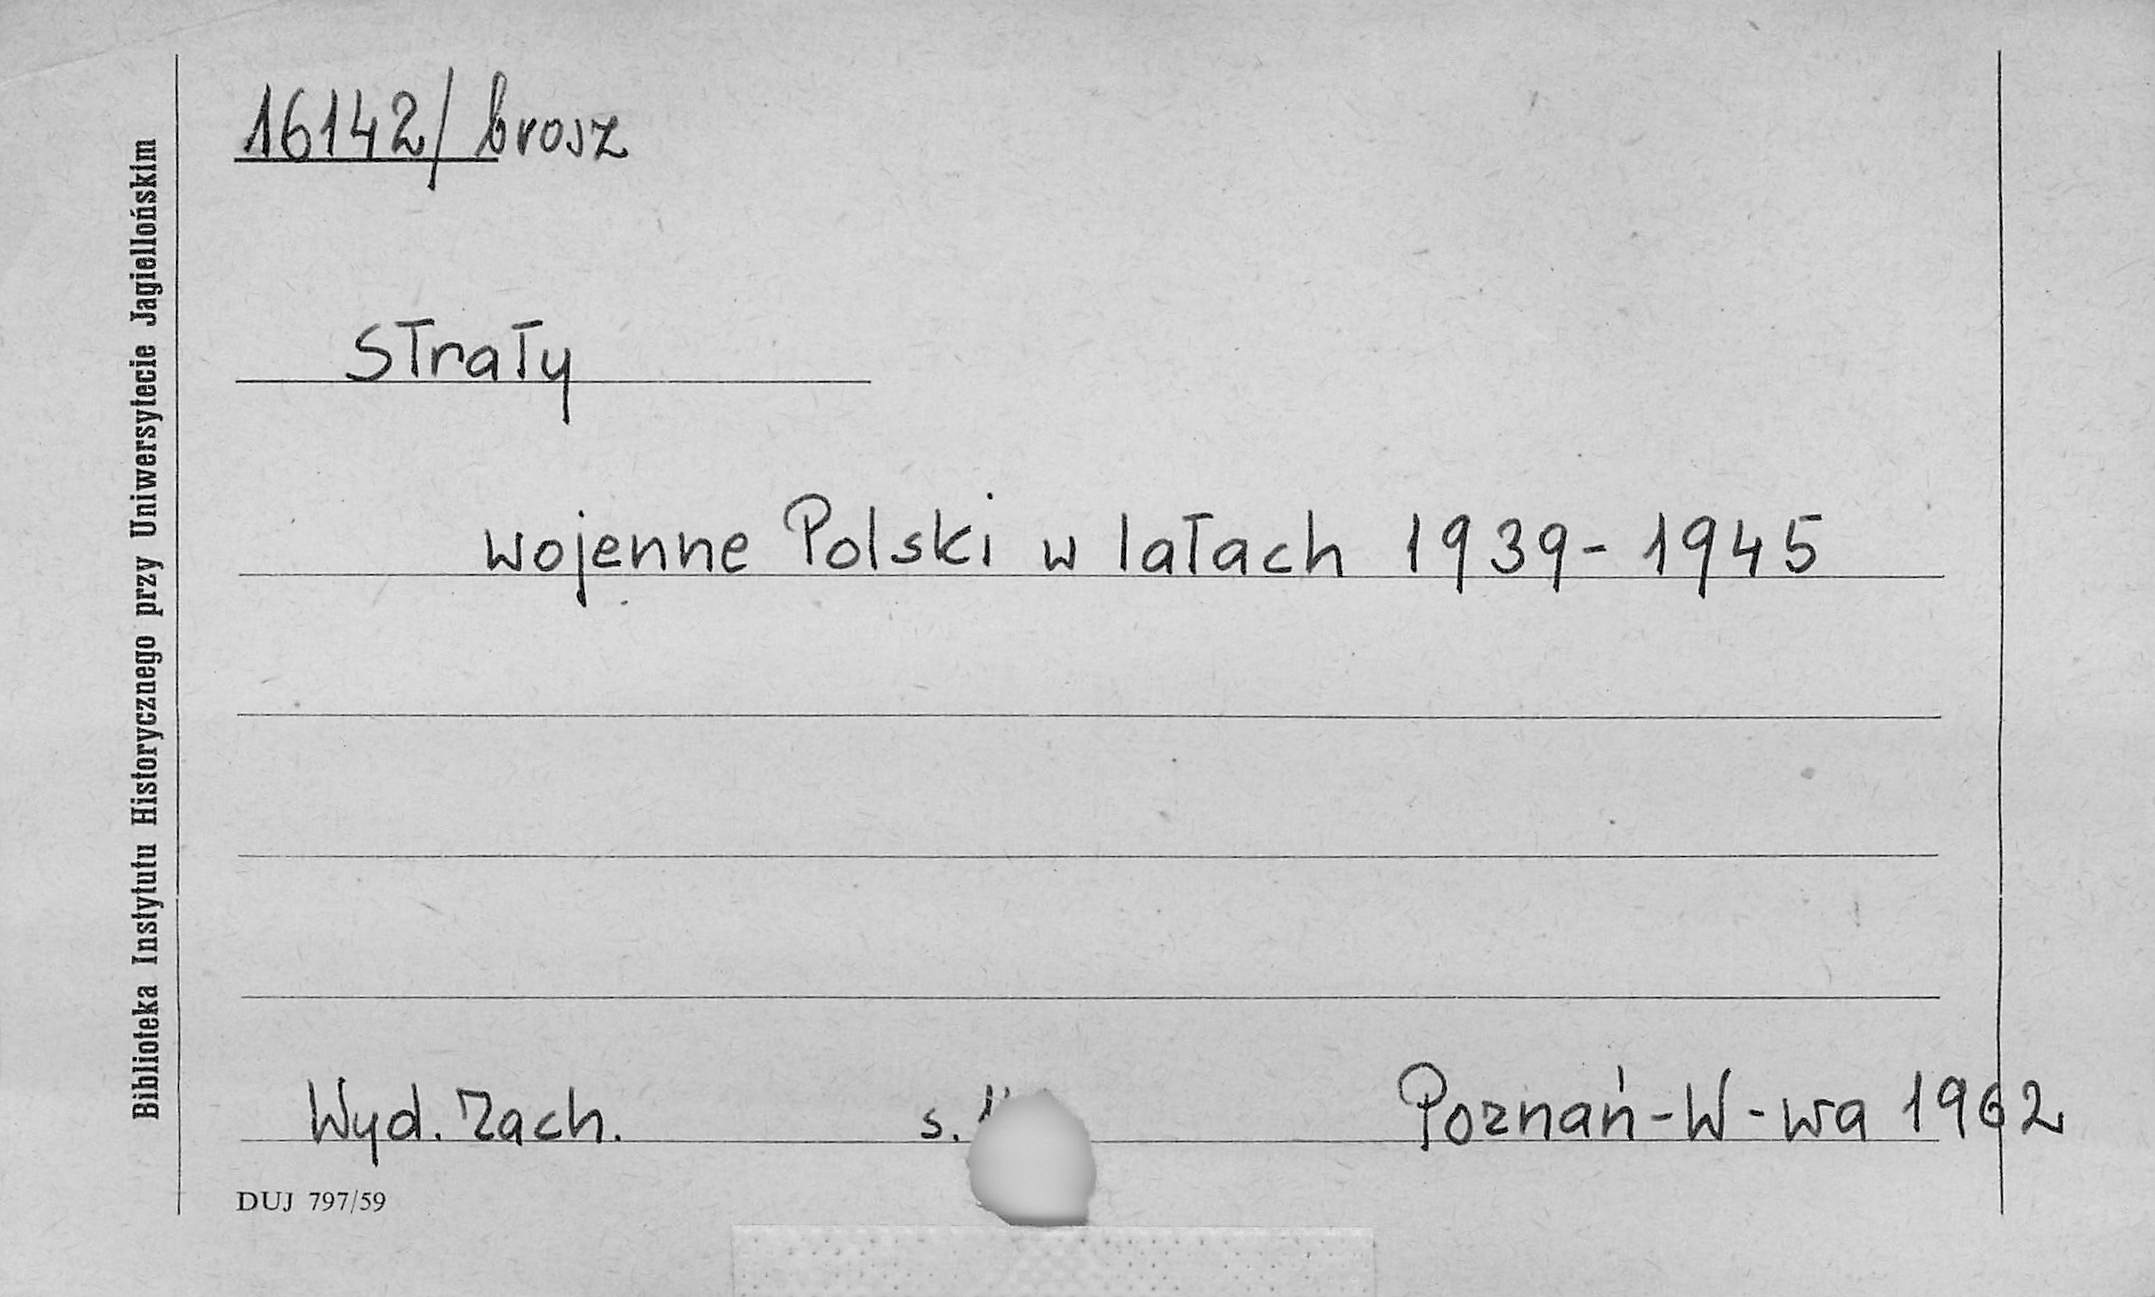 16142/brosz
Straty
wojenne Polski w latach 1939-1945
Wyd. Zach. s. Poznań-W-wa 1962
DUJ 797/59
Biblioteka Instytutu Historycznego przy Uniwersytecie Jagiellońskim